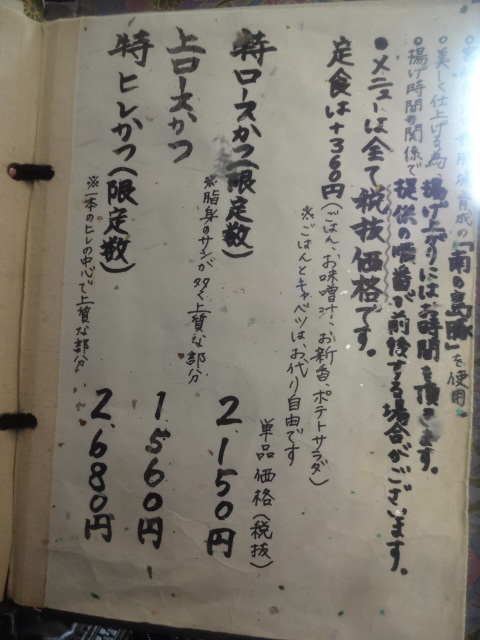 「南の島豚」を使用。
●美しく仕上げる為、揚げ上がりにはお時間を頂きます。
●揚げ時間の関係で提供の順番が前後する場合がございます。
●メニューは全て税抜価格です。
定食は+360円(ごはん、お味噌汁、お新香、ポテトサラダ)
※ごはんとキャベツは、お代り自由です
単品価格(税抜)
特ロースかつ(限定数) 2,150円
※脂身のサシが多く上質な部分
上ロースかつ 1,560円
特ヒレかつ(限定数) 2,680円
※一本のヒレの中心で上質な部分